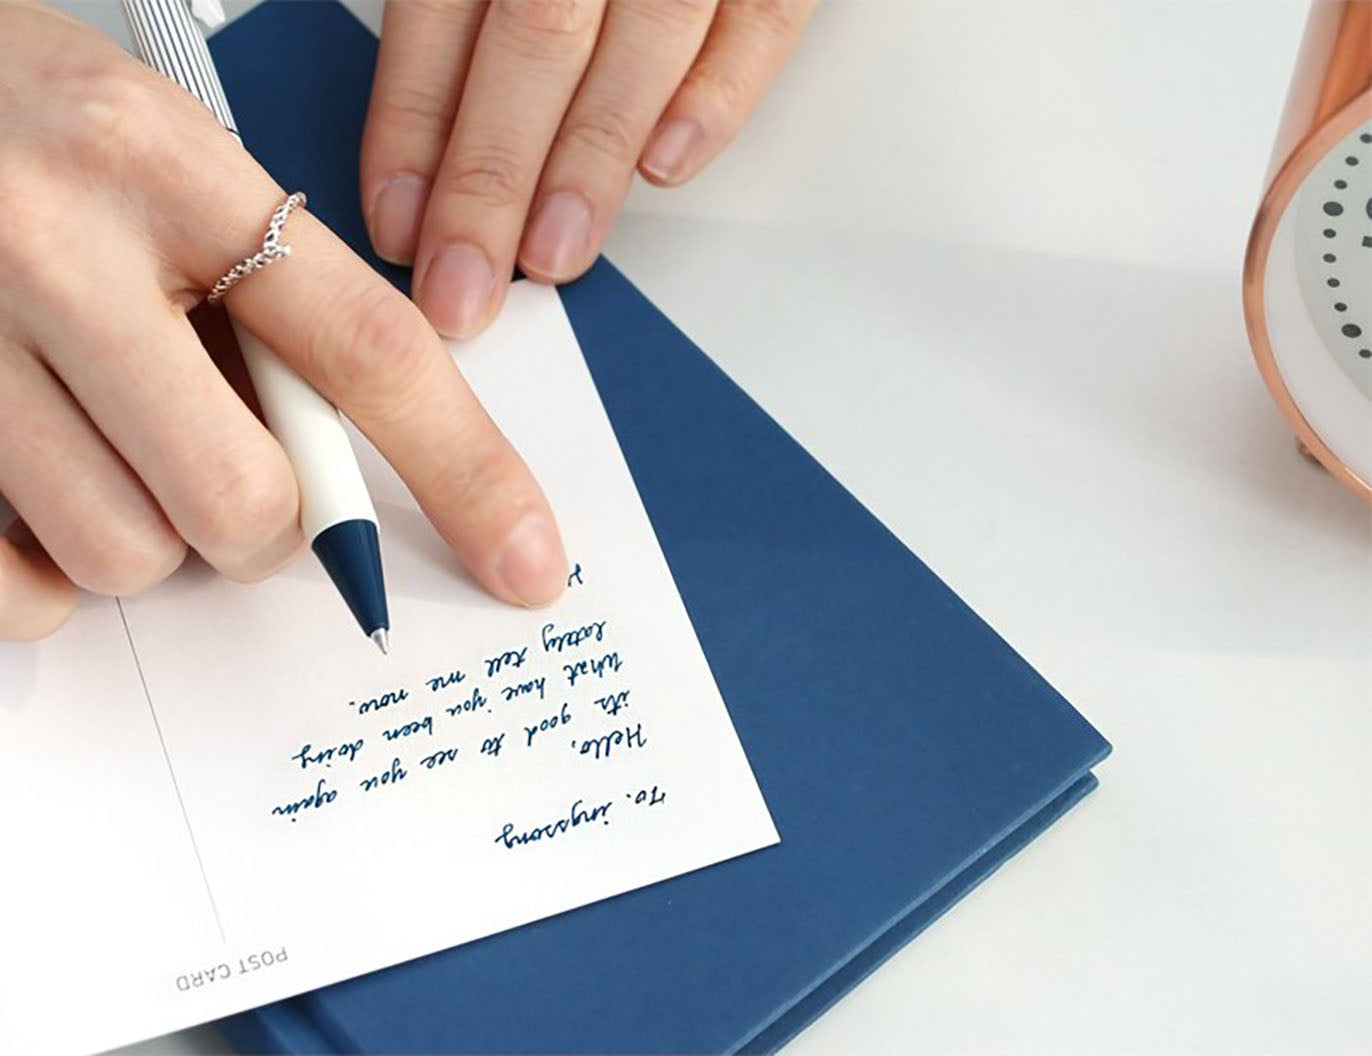 POST CARD
To. ingssong
Hello,
it's good to see you again
What have you been doing
lately tell me now.